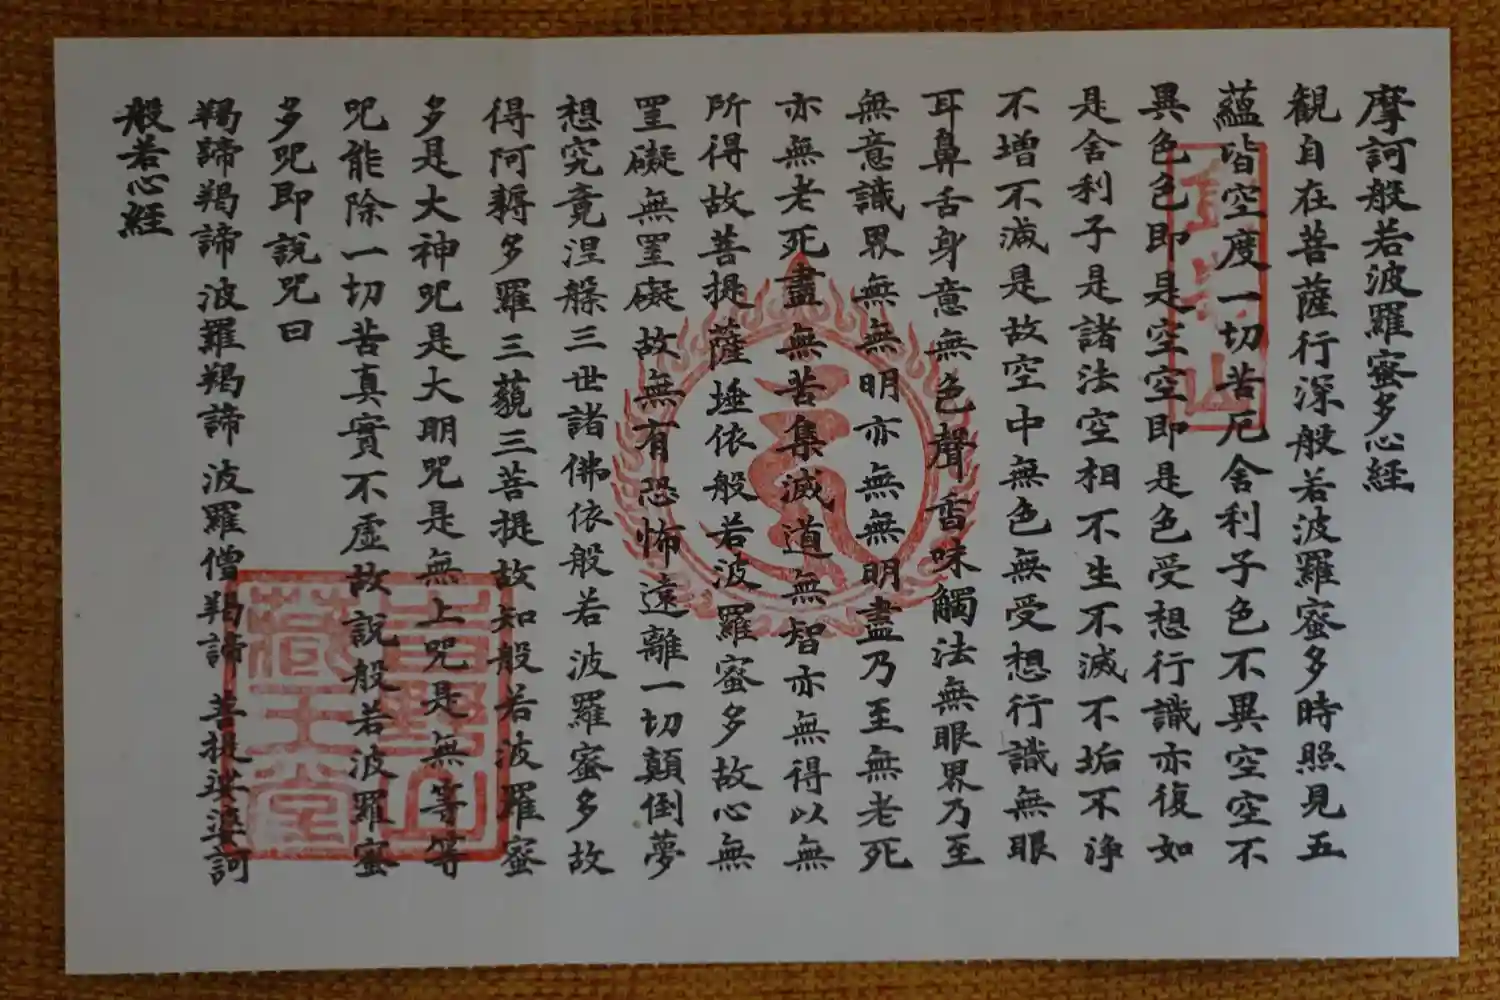 摩訶般若波羅蜜多心経
観自在菩薩行深般若波羅蜜多時照見五
蘊皆空度一切苦厄舎利子色不異空空不
異色色即是空空即是色受想行識亦復如
是舎利子是諸法空相不生不滅不垢不浄
不増不減是故空中無色無受想行識無眼
耳鼻舌身意無色聲香味觸法無眼界乃至
無意識界無無明亦無無明盡乃至無老死
亦無老死盡無苦集滅道無智亦無得以無
所得故菩提薩埵依般若波羅蜜多故心無
罣礙無罣礙故無有恐怖遠離一切顛倒夢
想究竟涅槃三世諸佛依般若波羅蜜多故
得阿耨多羅三藐三菩提故知般若波羅蜜
多是大神呪是大明呪是無上呪是無等等
呪能除一切苦真實不虚故説般若波羅蜜
多呪即説呪曰
羯諦羯諦波羅羯諦波羅僧羯諦菩提娑婆訶
般若心経
吉野山
藏王堂